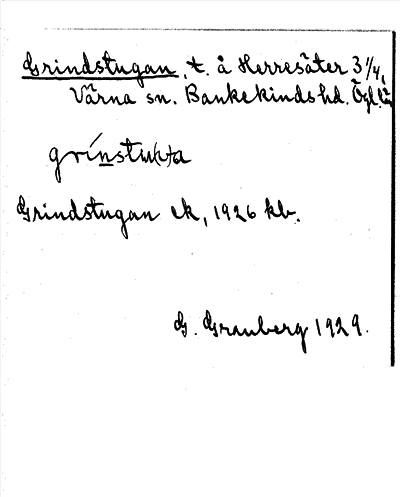 Grindstugan, t. å Herresäter 3 1/4,
Värna sn. Bankekinds hd. Ögl. län
Grindstugan ek, 1926 kb.
G. Granberg 1929.